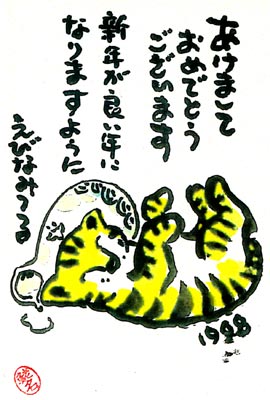 あけまして
おめでとう
ございます
新年が良い年に
なりますように
えびなみつる
1998